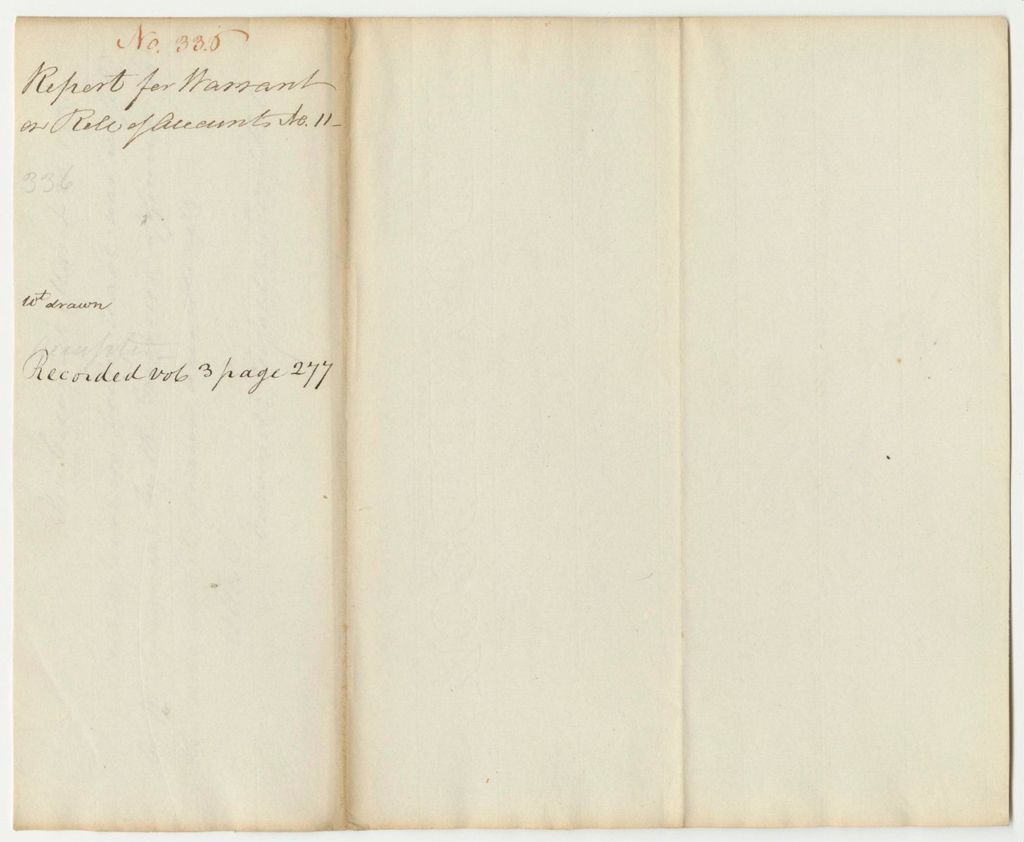 No. 335
Report for Warrant
on Roll of Accounts No. 11
336
Wt drawn
Recorded vol 3 page 277